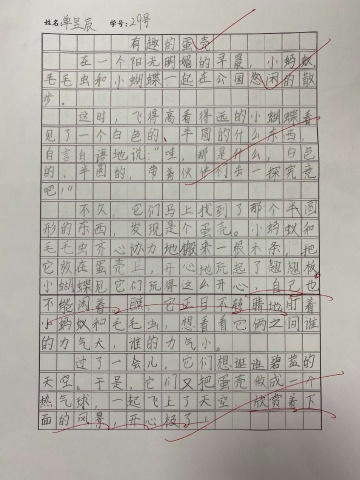 姓名:单昱辰 学号:29号
有趣的蛋壳
在一个阳光明媚的早晨，小蚂蚁、
毛毛虫和小蝴蝶一起在公园悠闲的散
步。
这时，飞得高看得远的小蝴蝶看
见了一个白色的、半圆的什么东西，
自言自语地说："哇，那是什么，白色
的、半圆的，带着伙伴们去一探究竟
吧！"
不久，它们马上找到了那个半圆
形的东西，发现是个蛋壳。小蚂蚁和
毛毛虫齐心协力地搬来一根木条，把
它放在蛋壳上，开心地玩起了翘翘板
小蝴蝶见它们玩得这么开心，自己也
不能闲着，它目不转睛地盯着
小蚂蚁和毛毛虫，想看看它俩之间谁
的力气大，谁的力气小。
过了一会儿，它们想逛逛碧蓝的
天空。于是，它们又把蛋壳做成一个
热气球，一起飞上了天空，欣赏着下
面的风景，开心极了！